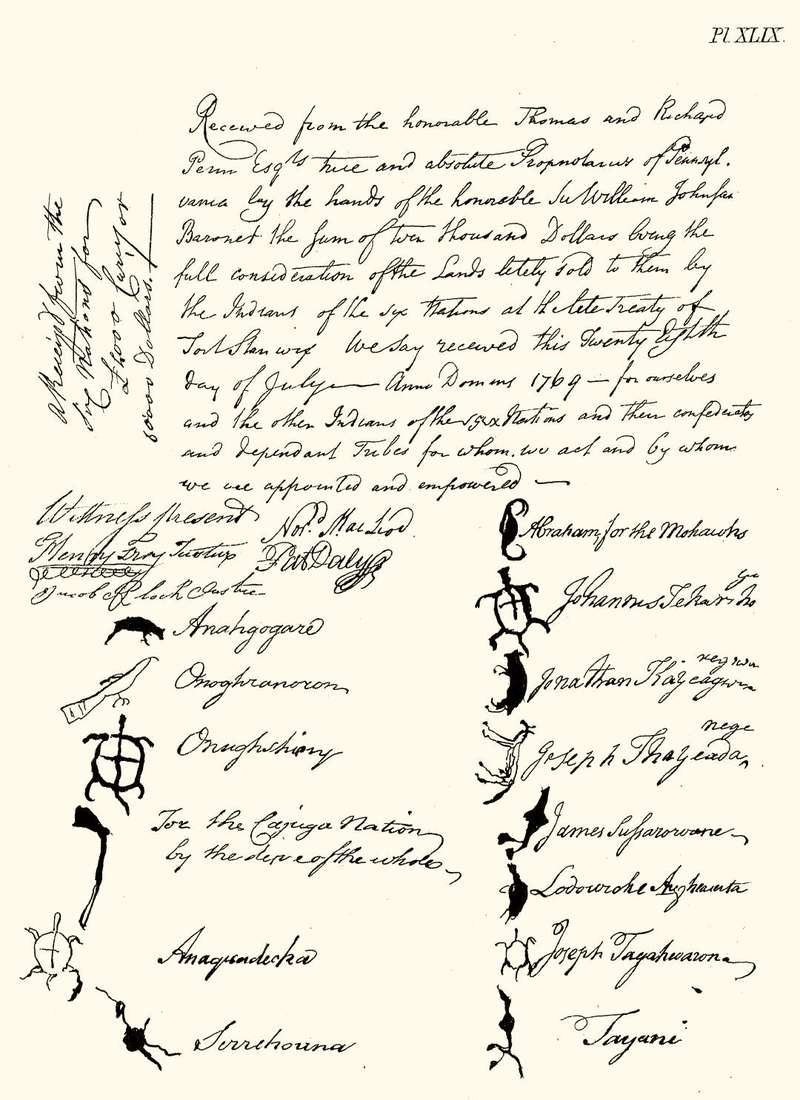 Pl. XLIX.
Received from the honorable Thomas and Richard
Penn Esqrs true and absolute Proprietaries of Pennsyl-
vania by the hands of the honorable Sir William Johnson
Baronet the Sum of ten thousand Dollars being the
full consideration of the Lands lately sold to them by
the Indians of the six Nations at the late Treaty of
Fort Stanwix We say received this Twenty Eighth
day of July Anno Domini 1769 — for ourselves
and the other Indians of the six Nations and their confederates
and dependant Tribes for whom we act and by whom
we are appointed and empowered —
a Receipt from the
six Nations for
10000 Dollars.
Witness present
Henry Frey Justice
Jacob Justice
Nord. MacLeod.
Pat Daly
Anahgogare
Onoghranoron
Onughshiny
For the Cajuga Nation
by the desire of the whole
Anaguadecka
Serrehouna
Abraham for the Mohawks
Johannes
Jonathan
Joseph
nege
James Sussarowane
Lodowicke
Joseph Tagahwarona
Tayani